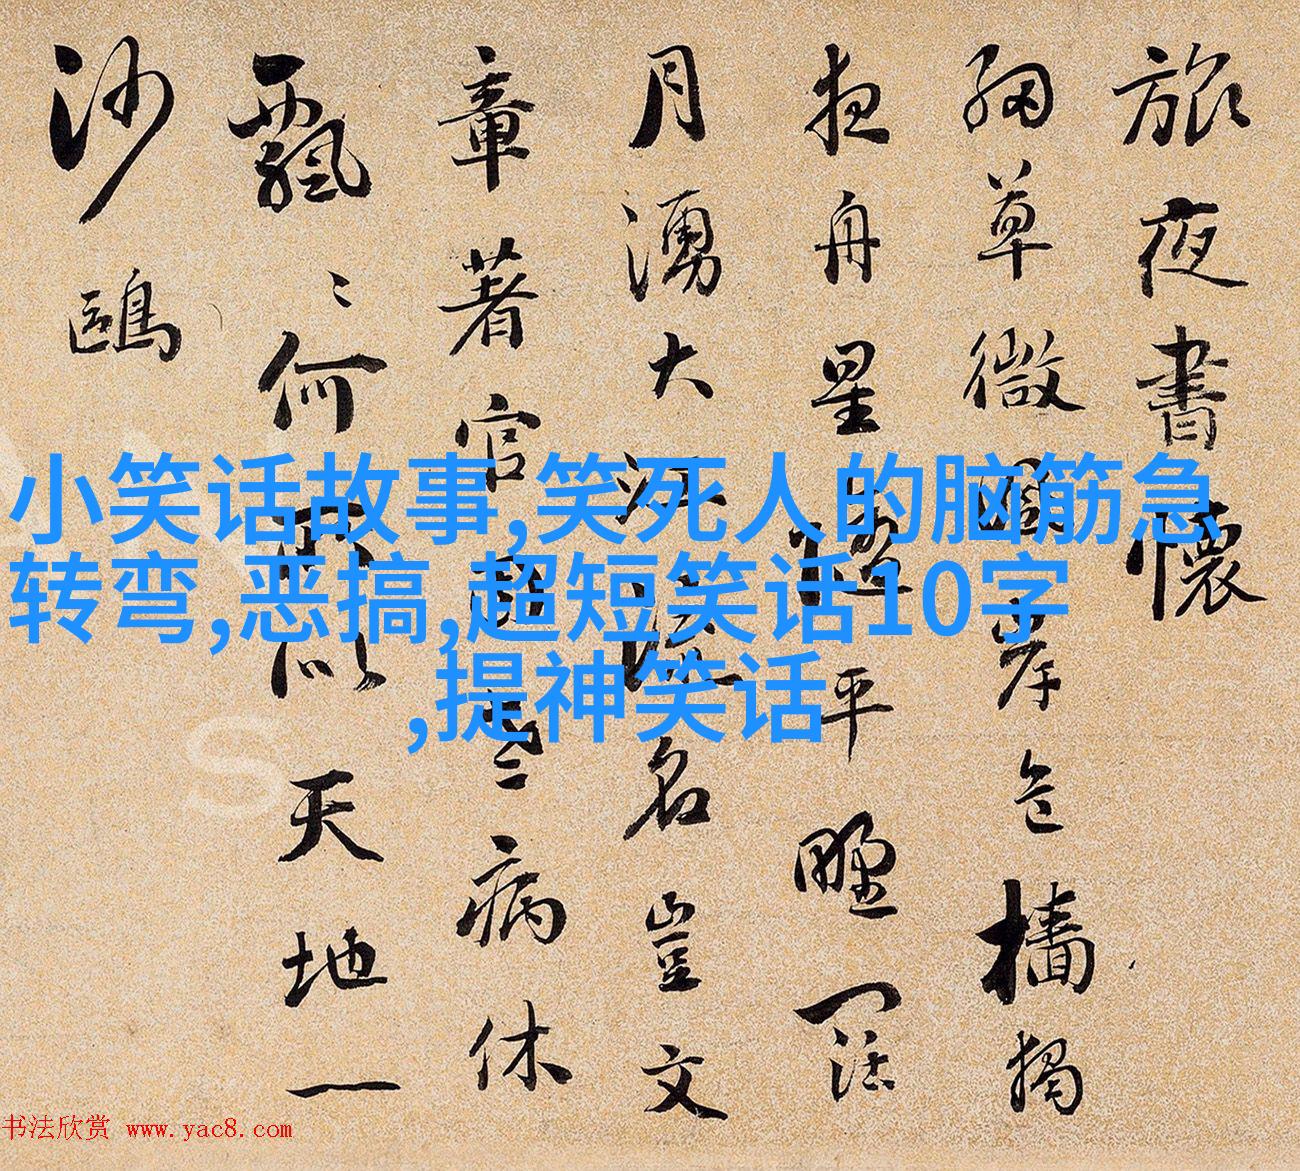 旅夜書懷
細草微風岸危檣獨
夜舟星垂平野闊
月湧大江流名豈文
章著官老病休
飄〻何所似天地一
沙鷗
小笑话故事,笑死人的脑筋急
转弯,恶搞,超短笑话10字
,提神笑话
书法欣赏 www.yac8.com